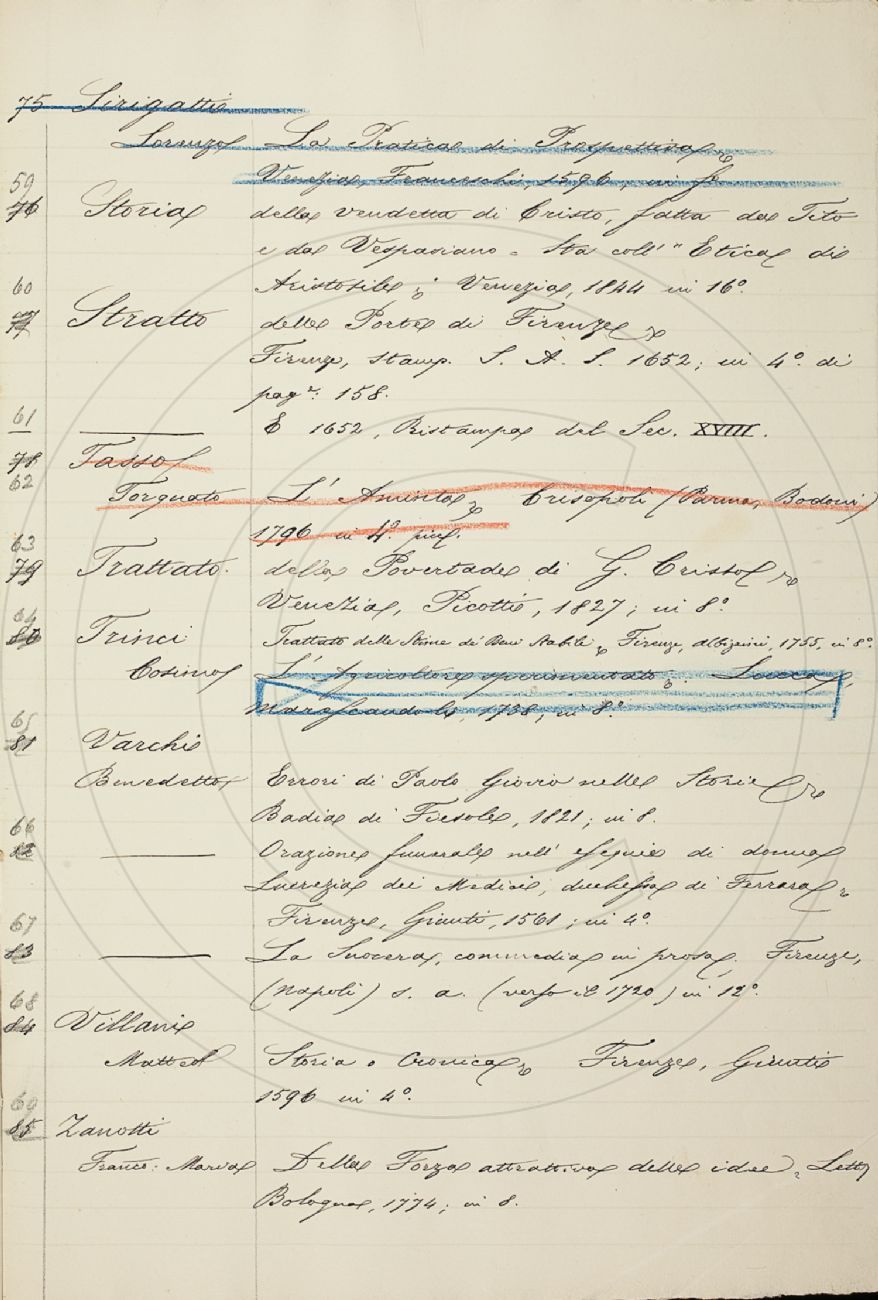 75 Sirigatti
Lorenzo La Pratica di Prospettiva,
Venezia, Franceschi, 1596, in fo
59
76 Storia della vendetta di Cristo, fatta da Tito
e da Vespasiano = Sta coll' "Etica di
60 Aristotile; Venezia, 1844 in 16º.
77 Stratto delle Porte di Firenze
Firenze, stamp. S. A. S. 1652; in 4º. di
pagᵉ: 158.
61 ——— E 1652, Ristampa del Sec. XVIII.
78 Tasso
62
Torquato L' Aminta, Crisopoli (Parma, Bodoni)
1796 in 4º. picc.
63
79 Trattato. della Povertade di G. Cristo
Venezia, Picotti, 1827; in 8º.
64
80 Trinci Trattato delle Stime de' Beni Stabili, Firenze, Albizzini, 1755, in 8º.
Cosimo L' Agricoltore sperimentato; Lucca,
Marescandoli, 1738; in 8º.
65
81 Varchi
Benedetto Errori di Paolo Giovio nelle Storie
Badia di Fiesole, 1821; in 8.
66
82 ——— Orazione funerale nell' esequie di donna
Lucrezia dei Medici, duchessa di Ferrara
67 Firenze, Giunti, 1561; in 4º.
83 ——— La Suocera, commedia in prosa, Firenze,
68 (Napoli) s. a. (verso il 1720) in 12º.
84 Villani
Matteo Storia o Cronica, Firenze, Giunti
1596 in 4º.
69
85 Zanotti
Franc: Maria Della Forza attrattiva delle idee, Lett,
Bologna, 1774; in 8.